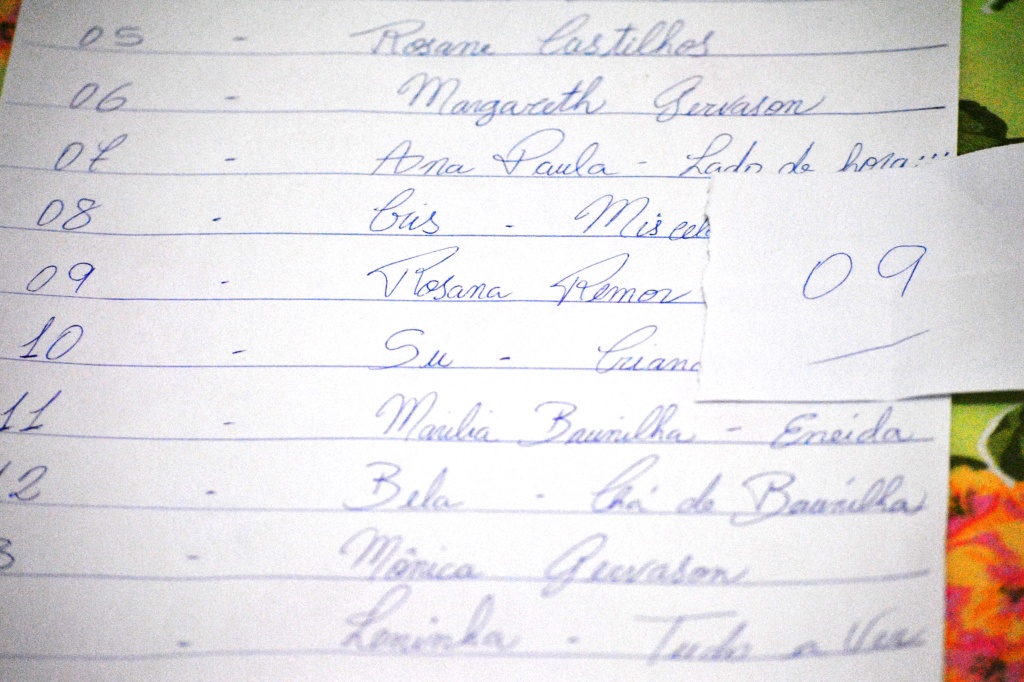 05 - Rosane Castilhos
06 - Margareth Gervason
07 - Ana Paula - Lado de hora...
08 - Cris -
09 - Rosana Remor
09
10 - Su -
11 - Marilia Baunilha - Eneida
12 - Bela - Chá de Baunilha
- Mônica Gervason
- Leninha - Tudo a Ver